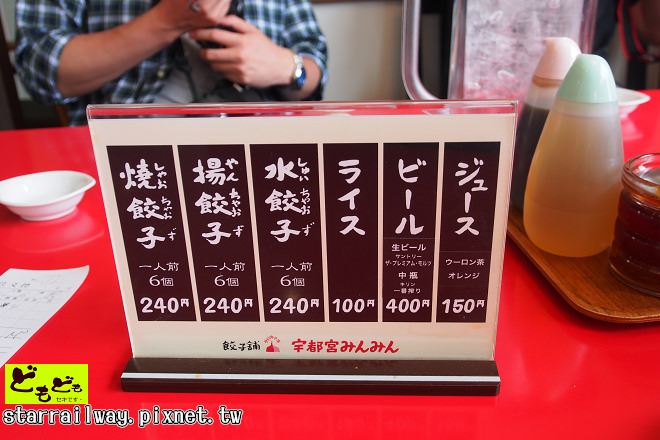 燒餃子
しゃおちゃおず
一人前
6個
240円
揚餃子
やんちゃおず
一人前
6個
240円
水餃子
しゅいちゃおず
一人前
6個
240円
ライス
100円
ビール
生ビール
サントリー
ザ・プレミアム・モルツ
中瓶
キリン
一番搾り
400円
ジュース
ウーロン茶
オレンジ
150円
餃子舗 宇都宮みんみん
どもども
セキです〜
starrailway.pixnet.tw